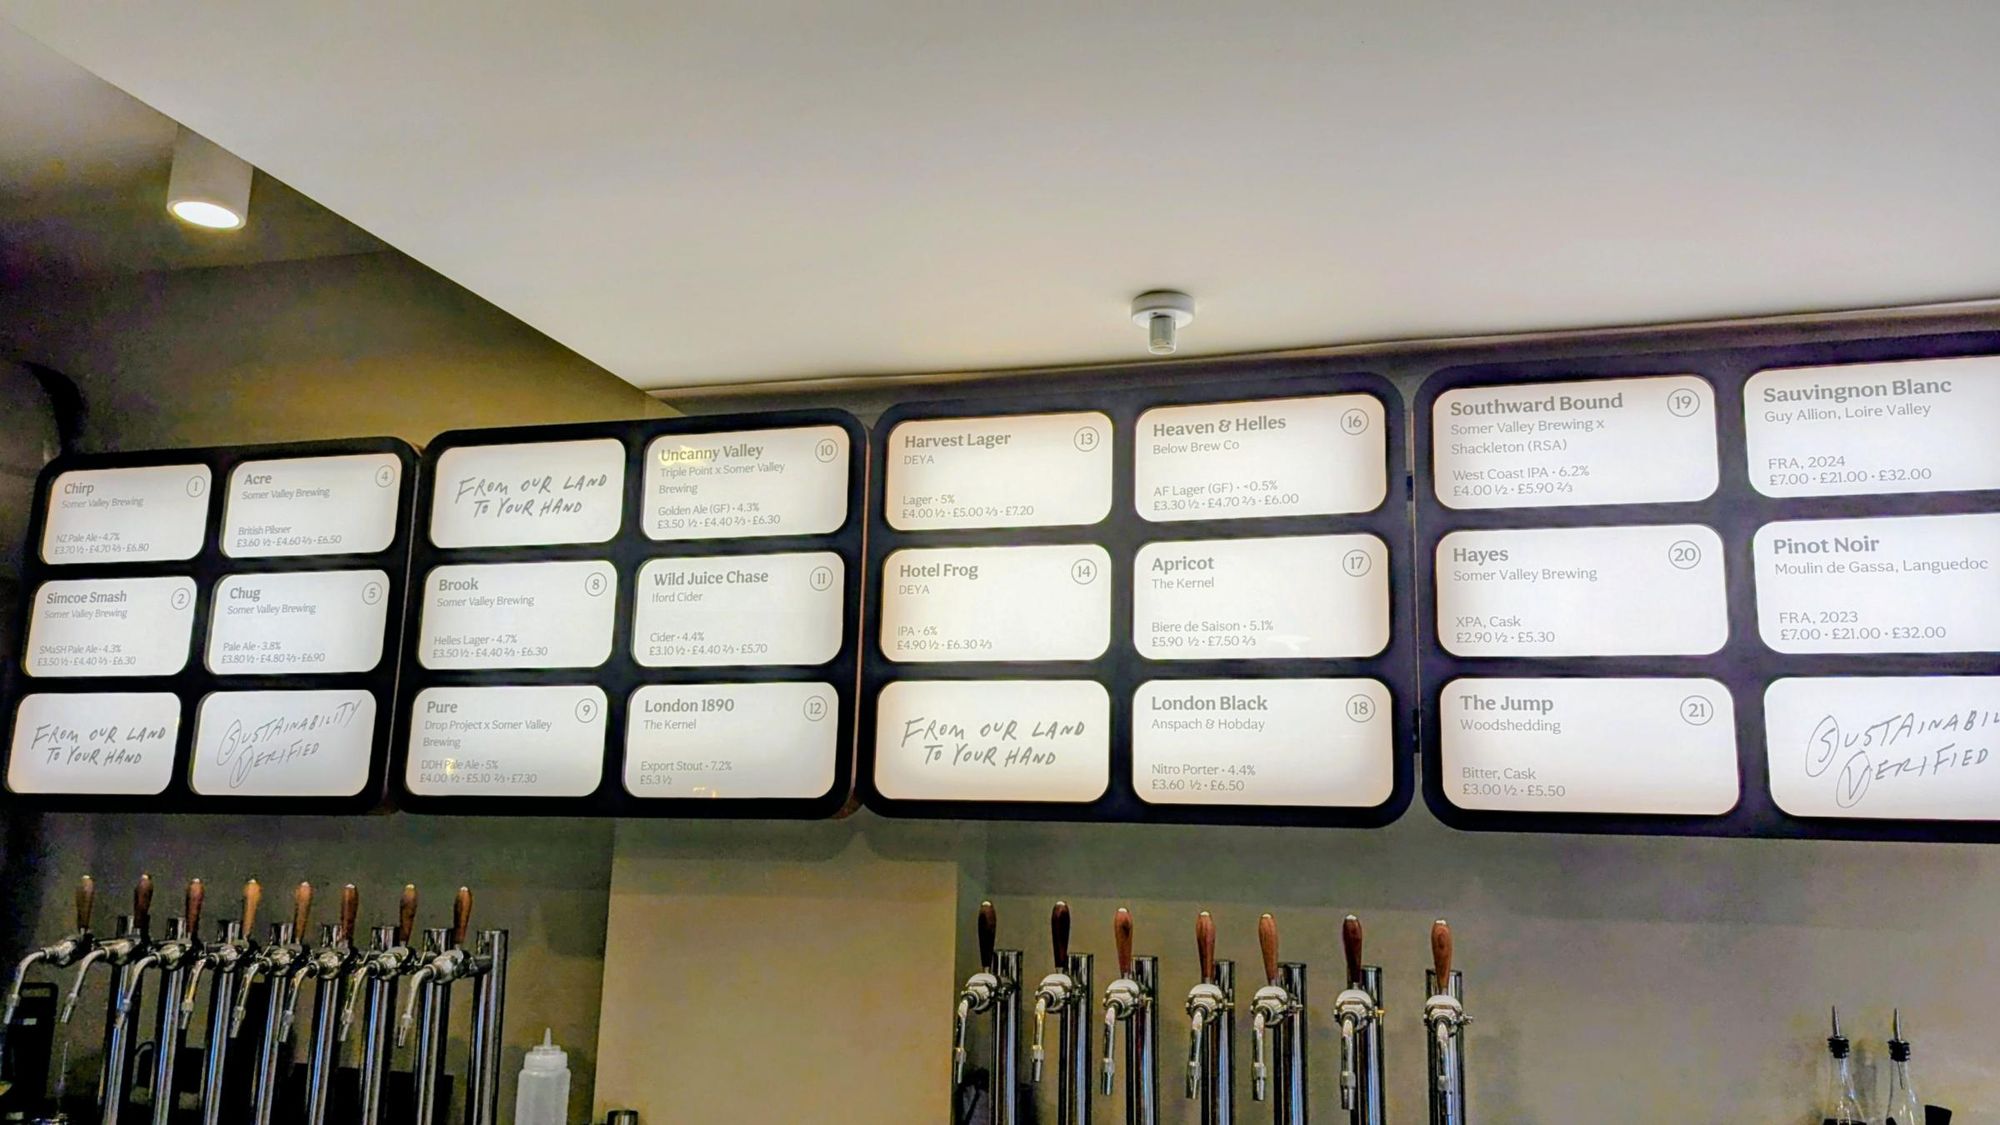 Chirp
1
Somer Valley Brewing
NZ Pale Ale • 4.7%
£3.70 ½ • £4.70 ⅔ • £6.80
Simcoe Smash
2
Somer Valley Brewing
SMaSH Pale Ale • 4.3%
£3.50 ½ • £4.40 ⅔ • £6.30
FROM OUR LAND
TO YOUR HAND
Acre
4
Somer Valley Brewing
British Pilsner
£3.60 ½ • £4.60 ⅔ • £6.50
Chug
5
Somer Valley Brewing
Pale Ale • 3.8%
£3.80 ½ • £4.80 ⅔ • £6.90
SUSTAINABILITY
VERIFIED
FROM OUR LAND
TO YOUR HAND
Brook
8
Somer Valley Brewing
Helles Lager • 4.7%
£3.50 ½ • £4.40 ⅔ • £6.30
Pure
9
Drop Project x Somer Valley
Brewing
DDH Pale Ale • 5%
£4.00 ½ • £5.10 ⅔ • £7.30
Uncanny Valley
10
Triple Point x Somer Valley
Brewing
Golden Ale (GF) • 4.3%
£3.50 ½ • £4.40 ⅔ • £6.30
Wild Juice Chase
11
Iford Cider
Cider • 4.4%
£3.10 ½ • £4.40 ⅔ • £5.70
London 1890
12
The Kernel
Export Stout • 7.2%
£5.3 ½
Harvest Lager
13
DEYA
Lager • 5%
£4.00 ½ • £5.00 ⅔ • £7.20
Hotel Frog
14
DEYA
IPA • 6%
£4.90 ½ • £6.30 ⅔
FROM OUR LAND
TO YOUR HAND
Heaven & Helles
16
Below Brew Co
AF Lager (GF) • <0.5%
£3.30 ½ • £4.70 ⅔ • £6.00
Apricot
17
The Kernel
Biere de Saison • 5.1%
£5.90 ½ • £7.50 ⅔
London Black
18
Anspach & Hobday
Nitro Porter • 4.4%
£3.60 ½ • £6.50
Southward Bound
19
Somer Valley Brewing x
Shackleton (RSA)
West Coast IPA • 6.2%
£4.00 ½ • £5.90 ⅔
Hayes
20
Somer Valley Brewing
XPA, Cask
£2.90 ½ • £5.30
The Jump
21
Woodshedding
Bitter, Cask
£3.00 ½ • £5.50
Sauvingnon Blanc
Guy Allion, Loire Valley
FRA, 2024
£7.00 • £21.00 • £32.00
Pinot Noir
Moulin de Gassa, Languedoc
FRA, 2023
£7.00 • £21.00 • £32.00
SUSTAINABIL
VERIFIED